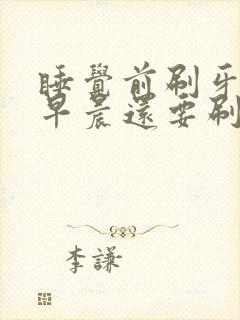 睡覺前刷牙
早晨還要刷
李謙